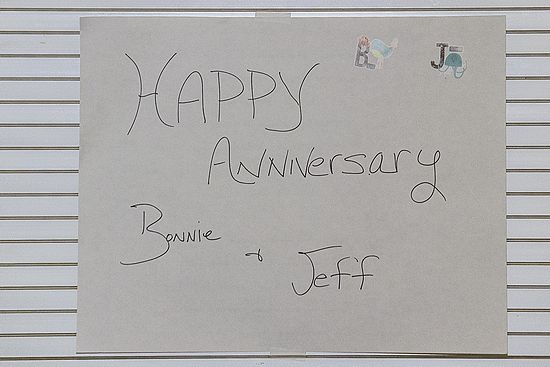 B J
HAPPY
ANNIVersary
Bonnie
+ Jeff